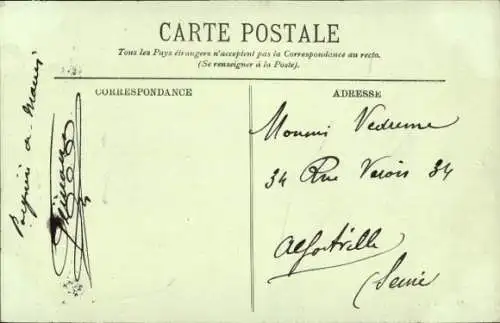 CARTE POSTALE
Tous les Pays étrangers n'acceptent pas la Correspondance au recto.
(Se renseigner à la Poste).
CORRESPONDANCE
ADRESSE
Vedrenne
34 Rue 34
Alfortville
Seine